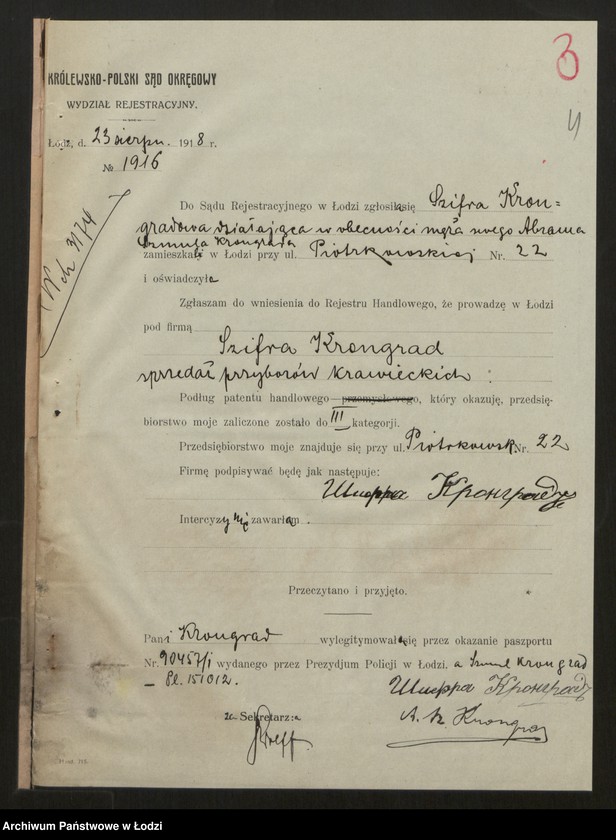 3
4
KRÓLEWSKO-POLSKI SĄD OKRĘGOWY
WYDZIAŁ REJESTRACYJNY.
Łódź, d. 23 sierpn. 1918 r.
№ 1916
Do Sądu Rejestracyjnego w Łodzi zgłosiła się Szifra Kron=
gradowa działająca w obecności męża swego Abrama
Szmula Krongrada
zamieszkali w Łodzi przy ul. Piotrkowskiej Nr. 22
i oświadczyła
Zgłaszam do wniesienia do Rejestru Handlowego, że prowadzę w Łodzi
pod firmą
Szifra Krongrad
sprzedaż przyborów krawieckich :
Podług patentu handlowego przemysłowego, który okazuję, przedsię-
biorstwo moje zaliczone zostało do III kategorji.
Przedsiębiorstwo moje znajduje się przy ul. Piotrkowsk. Nr. 22
Firmę podpisywać będę jak następuje:
Шифра Кронградъ
Intercyzy nie zawarłam.
Przeczytano i przyjęto.
Pani Krongrad wylegitymowała się przez okazanie paszportu
Nr. 90457/i wydanego przez Prezydjum Policji w Łodzi, a Szmul Krongrad
- Pl. 151012.
Шифра Кронградъ
Sekretarza
A. Sz Krongrad
Archiwum Państwowe w Łodzi